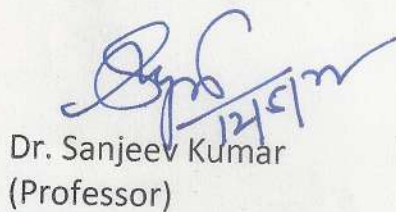 12/5/22
Dr. Sanjeev Kumar
(Professor)